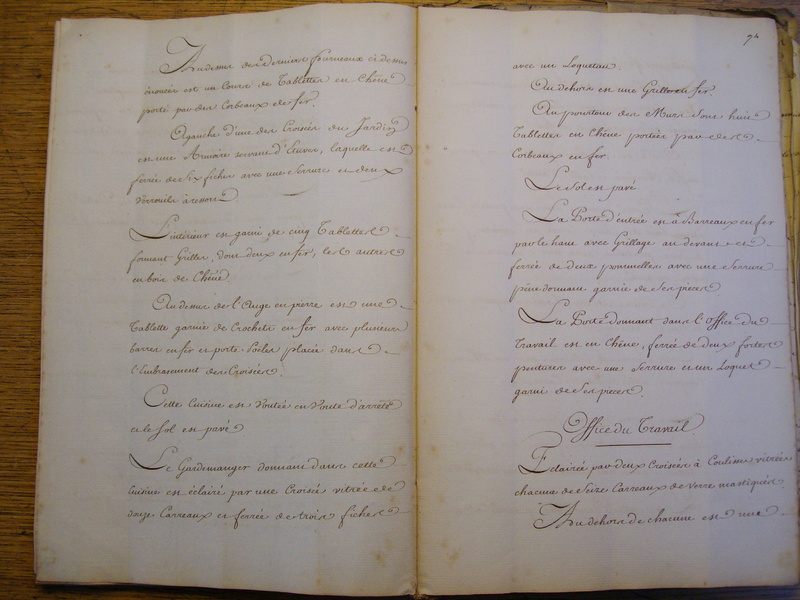 Au dessus des derniers fourneaux ci dessus
énoncés est un Cours de Tablettes en Chêne
porté par des Corbeaux de fer.
A gauche d'une des Croisées du Jardin
est une Armoire servant d'Etuve, laquelle est
ferrée de Six fiches avec une Serrure et deux
Verrouils à ressort
L'intérieur est garni de cinq Tablettes
formant Grilles, dont deux en fer, les autres
en bois de Chêne
Au dessus de l'Auge en pierre est une
Tablette garnie de Crochets en fer avec plusieurs
barres en fer et porte Poeles placée dans
l'Embrasement des Croisées.
Cette Cuisine est voutée en voute d'arrête
et le Sol est pavé
Le Gardemanger donnant dans cette
Cuisine est éclairé par une Croisée vitrée de
douze Carreaux et ferrée de trois fiches
94
avec un Loqueteau.
Au dehors est une Grille en fer
Au pourtour des Murs Sont huit
Tablettes en Chêne portées par des
Corbeaux en fer.
Le Sol est pavé
La Porte d'entrée est à Barreaux en fer
par le haut avec Grillage au devant et
ferrée de deux pommelles avec une Serrure
pène dormant garnie de Ses pieces
La Porte donnant dans l'office du
Travail est en Chêne, ferrée de deux fortes
pentures avec une Serrure et un Loquet
garni de Ses pieces
Office du Travail
Eclairée par deux Croisées à Coulisse vitrées
chacune de Seize Carreaux de verre mastiqués
Au dehors de chacune est une